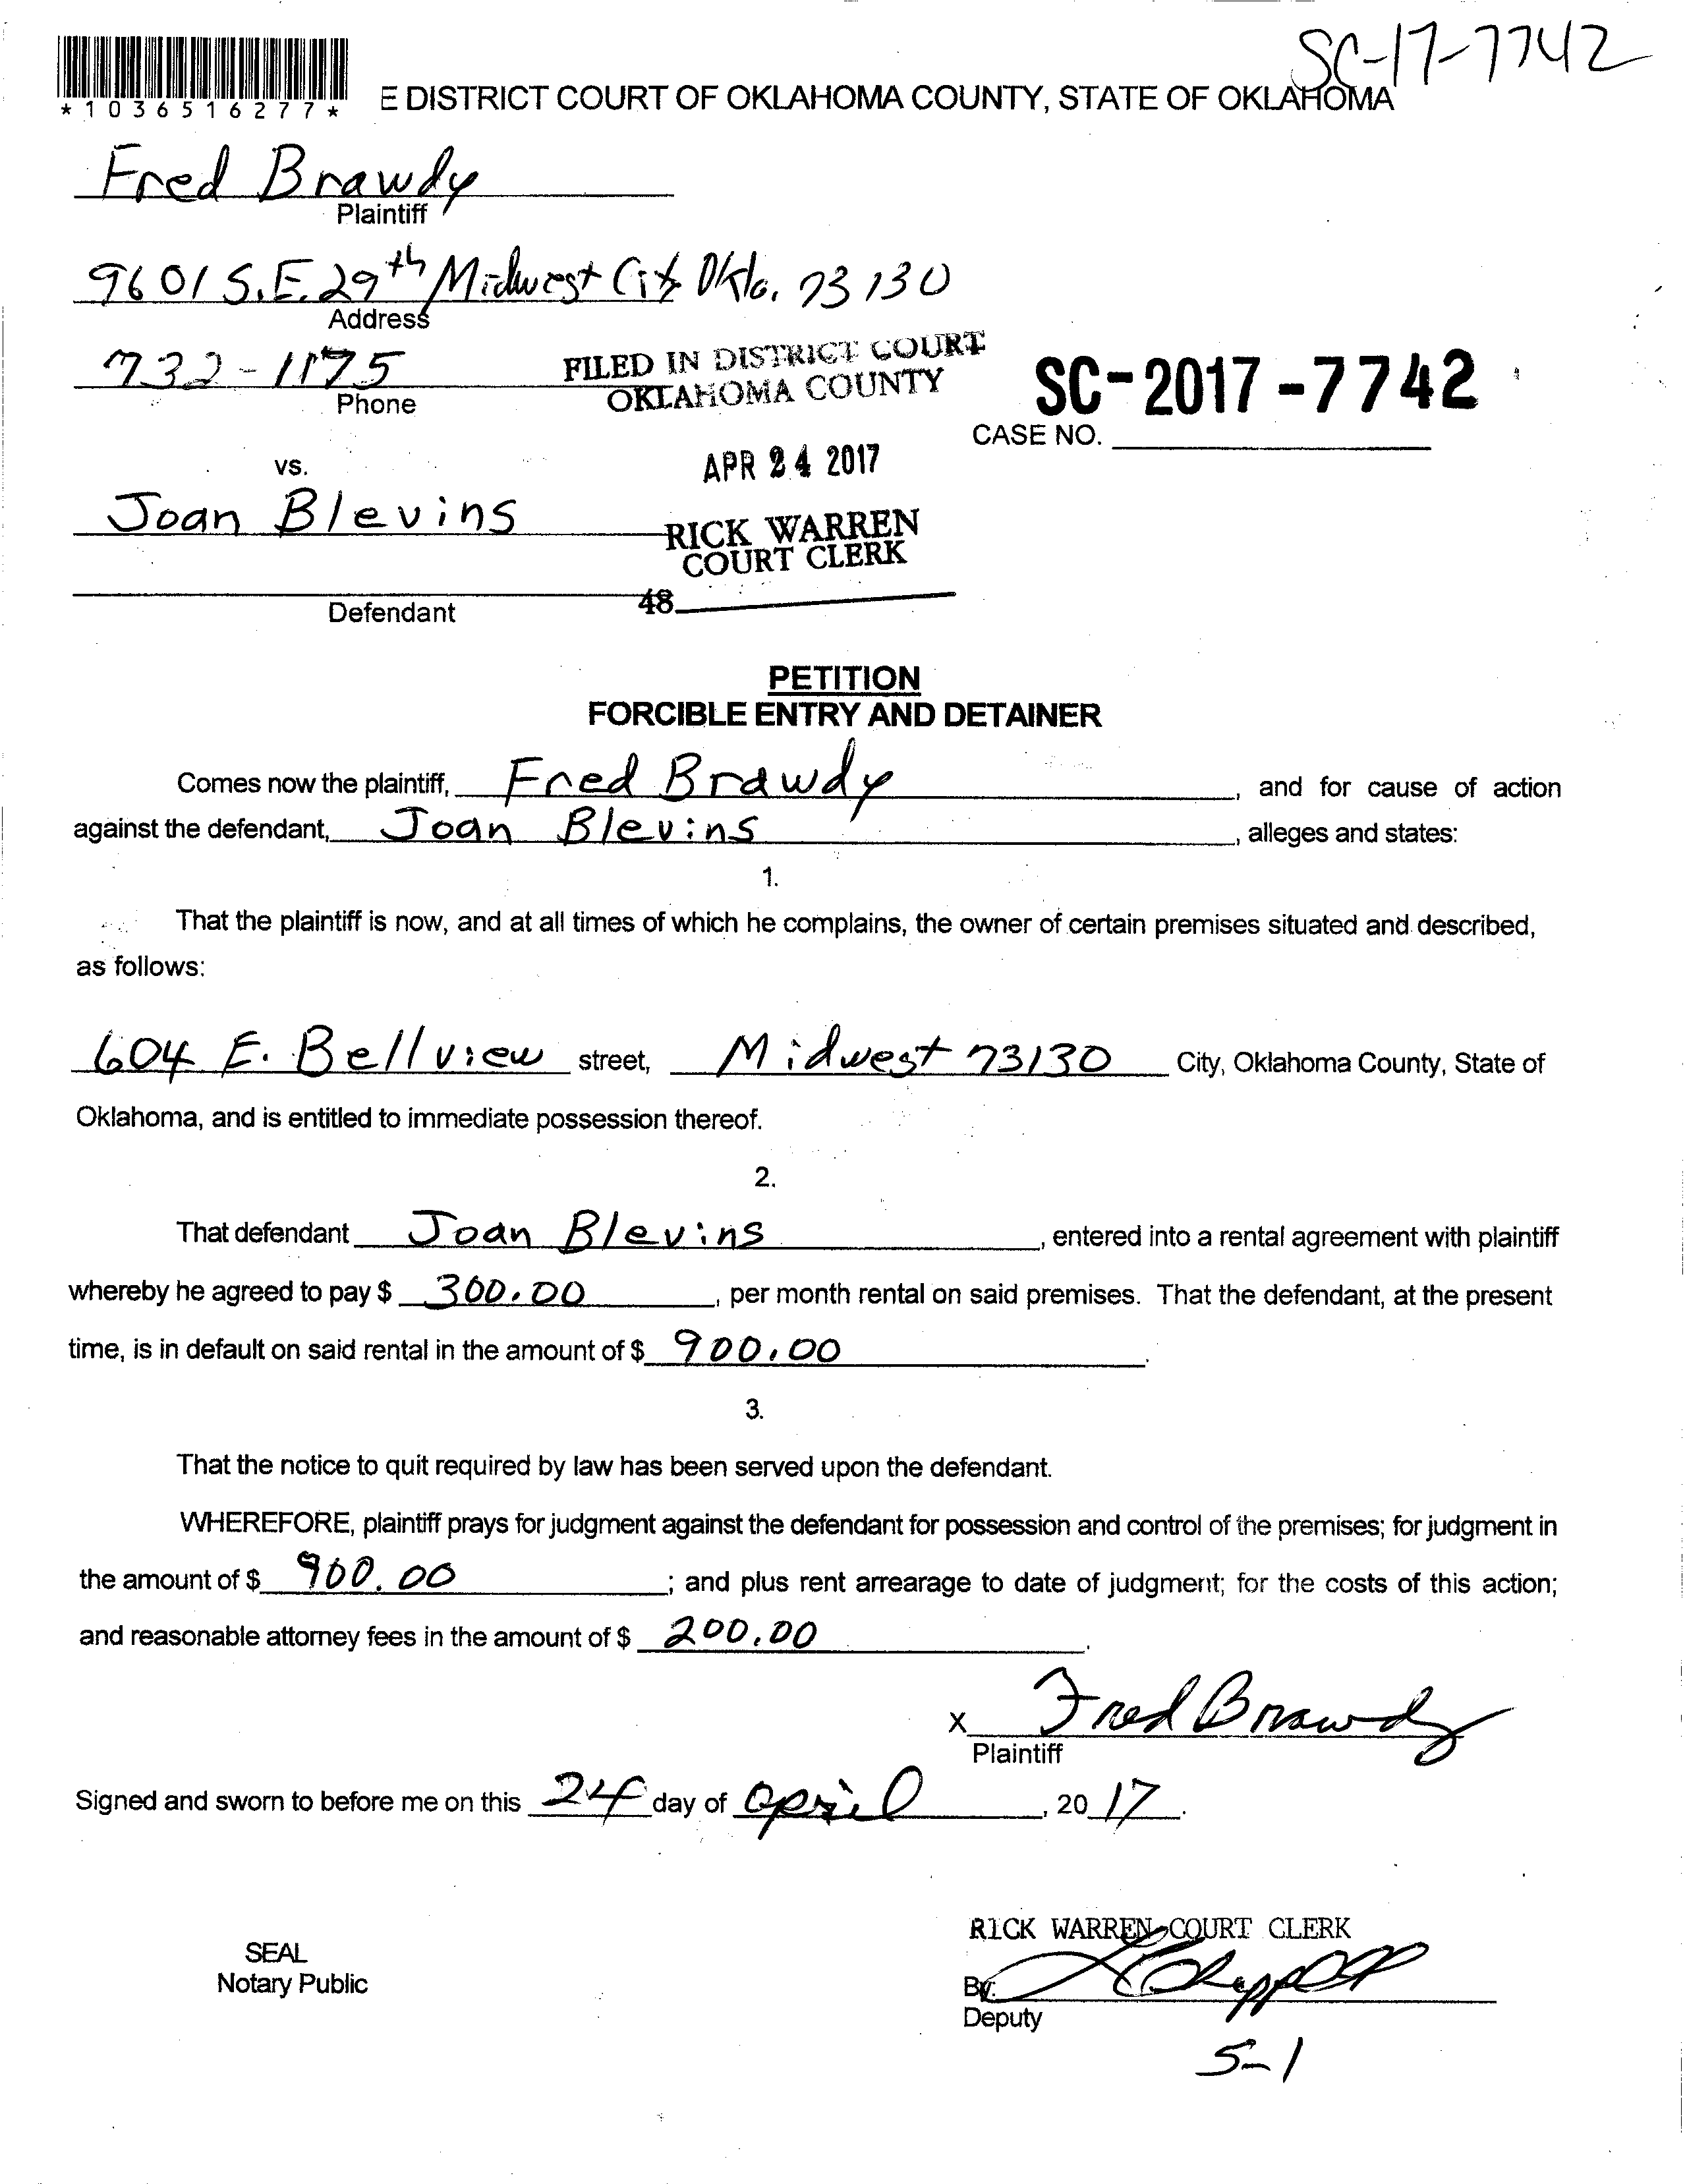 SC-17-7742
*1036516277*
E DISTRICT COURT OF OKLAHOMA COUNTY, STATE OF OKLAHOMA
Fred Brawdy
Plaintiff
9601 S.E. 29th Midwest City Okla. 73130
Address
732-1175
Phone
FILED IN DISTRICT COURT
OKLAHOMA COUNTY
SC-2017-7742
CASE NO.
vs.
APR 24 2017
Joan Blevins
RICK WARREN
COURT CLERK
48
Defendant
PETITION
FORCIBLE ENTRY AND DETAINER
Comes now the plaintiff, Fred Brawdy, and for cause of action
against the defendant, Joan Blevins, alleges and states:
1.
That the plaintiff is now, and at all times of which he complains, the owner of certain premises situated and described,
as follows:
604 E. Bellview street, Midwest 73130 City, Oklahoma County, State of
Oklahoma, and is entitled to immediate possession thereof.
2.
That defendant Joan Blevins, entered into a rental agreement with plaintiff
whereby he agreed to pay $ 300.00, per month rental on said premises. That the defendant, at the present
time, is in default on said rental in the amount of $ 900.00.
3.
That the notice to quit required by law has been served upon the defendant.
WHEREFORE, plaintiff prays for judgment against the defendant for possession and control of the premises; for judgment in
the amount of $ 900.00; and plus rent arrearage to date of judgment; for the costs of this action;
and reasonable attorney fees in the amount of $ 200.00.
X Fred Brawdy
Plaintiff
Signed and sworn to before me on this 24 day of April, 20 17.
RICK WARREN COURT CLERK
SEAL
Notary Public
By:
Deputy
5-1